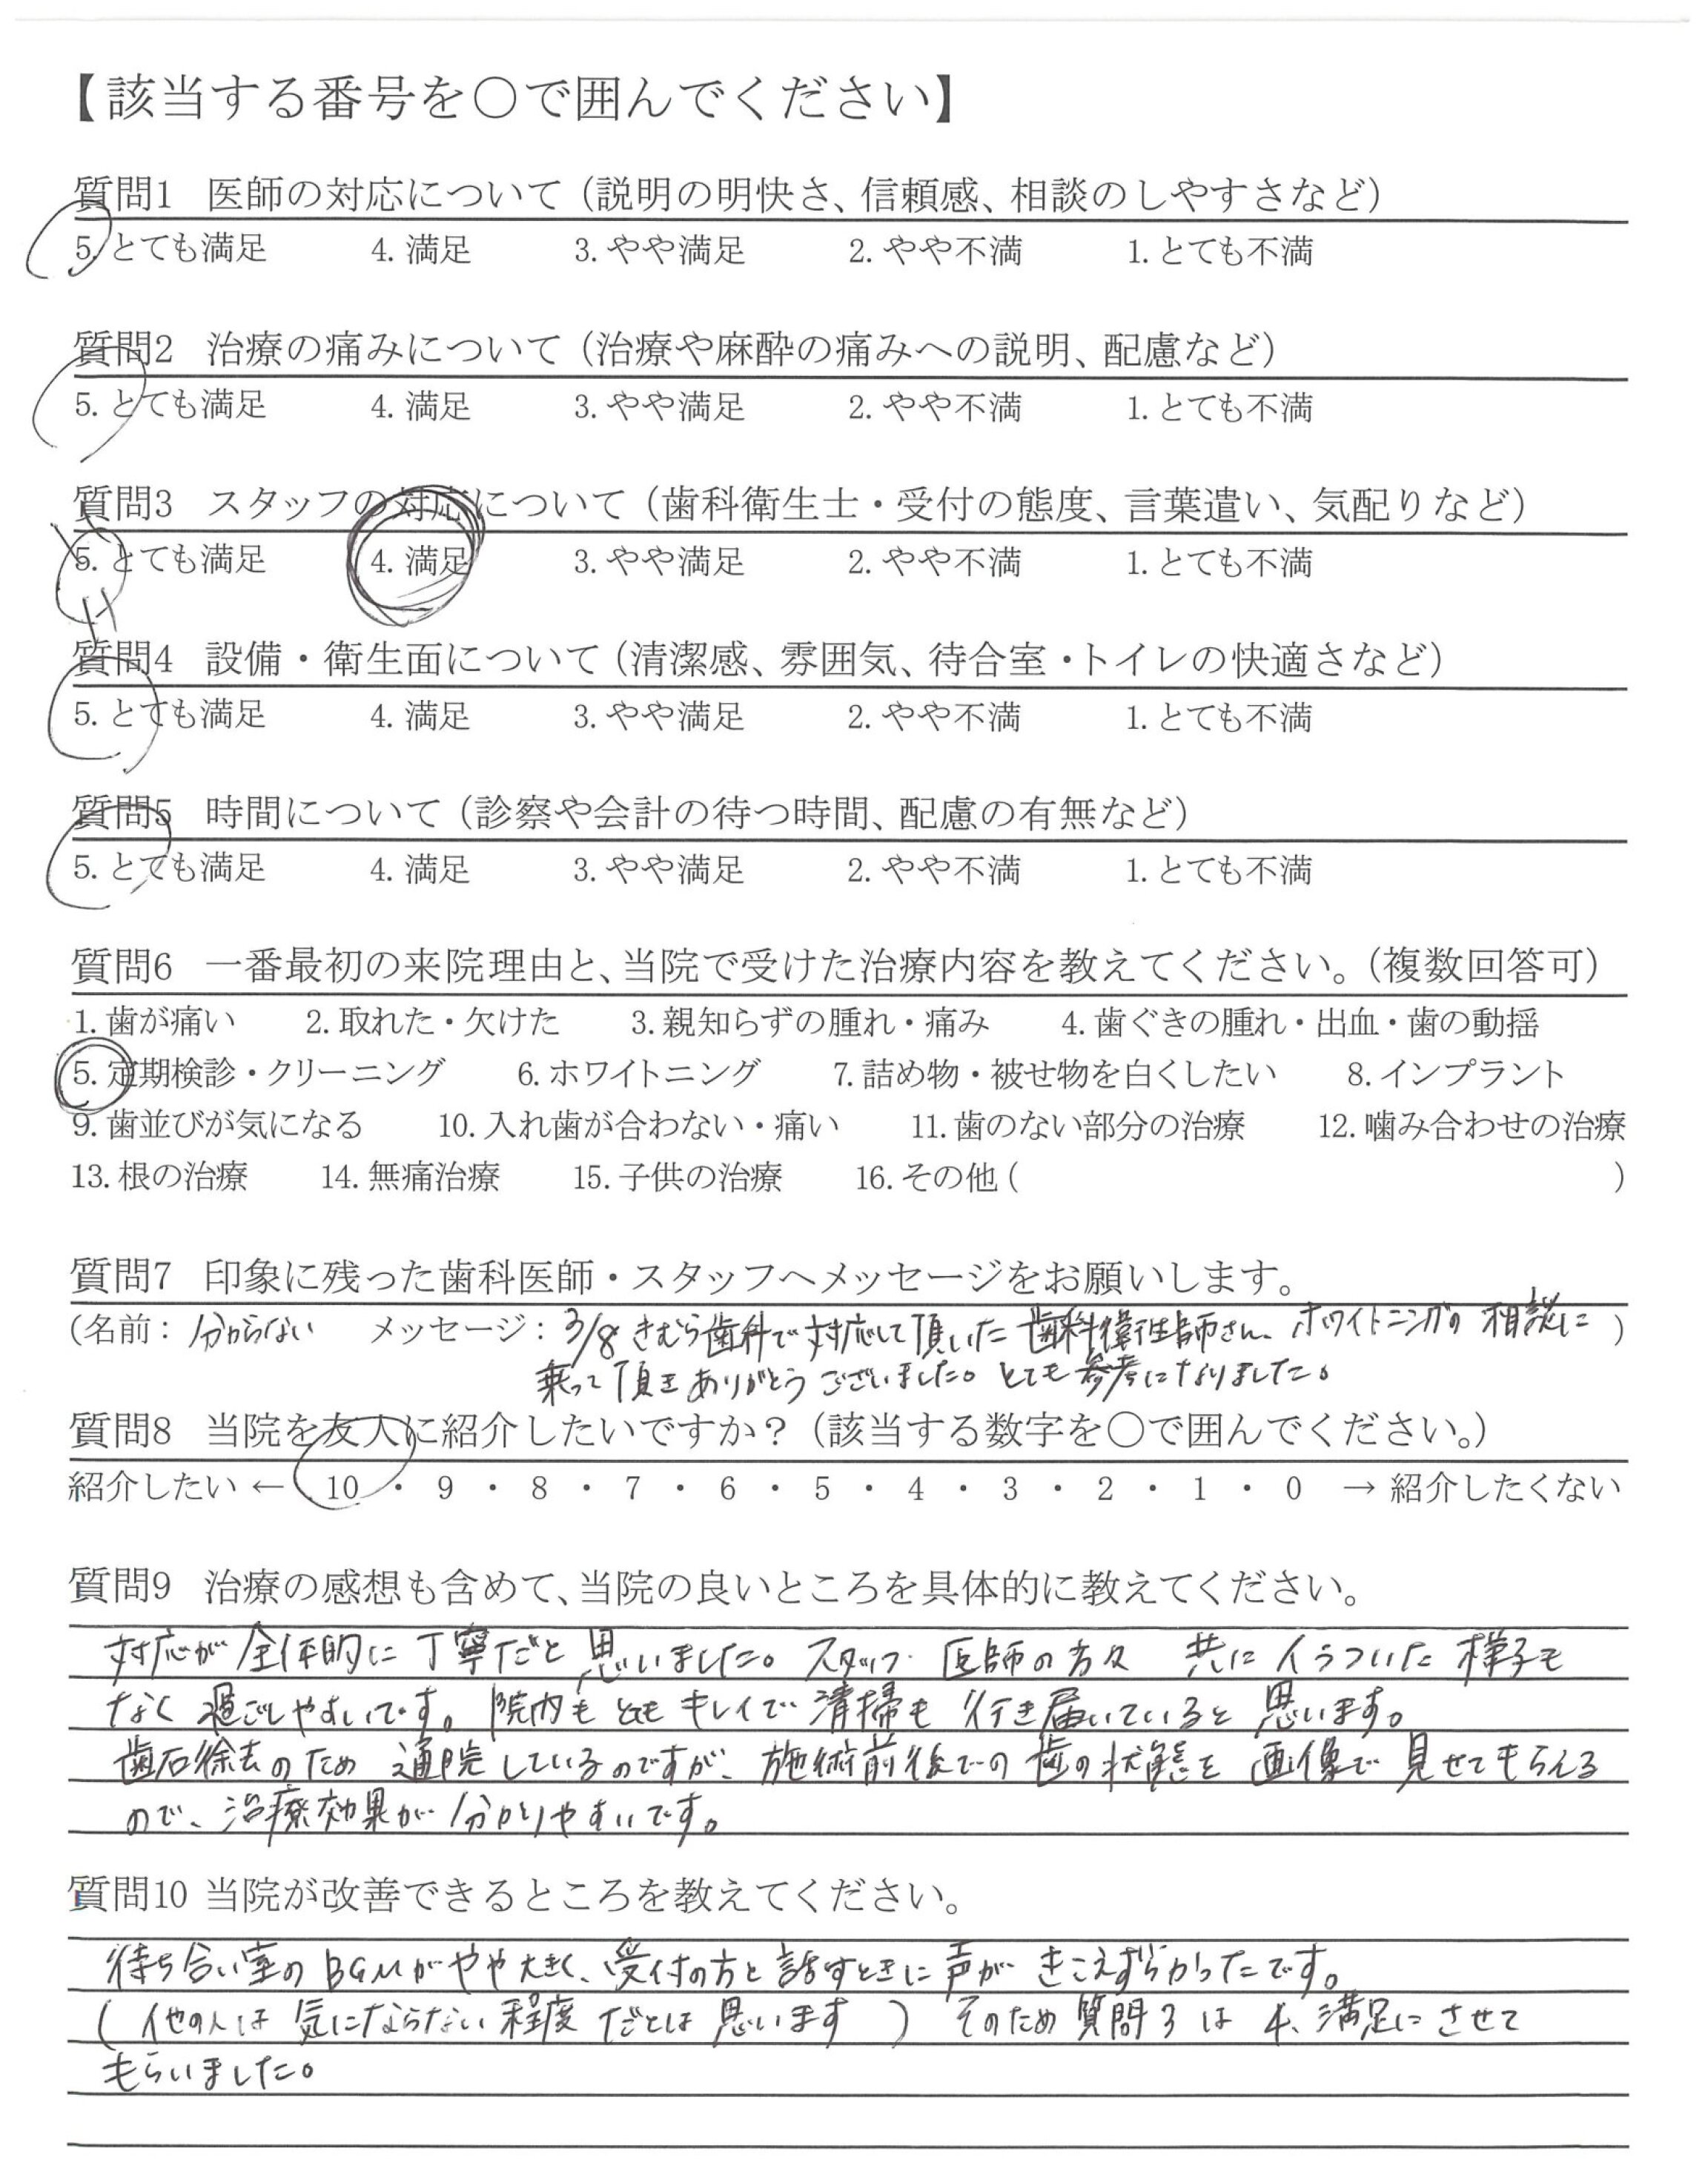 【該当する番号を○で囲んでください】
質問1 医師の対応について（説明の明快さ、信頼感、相談のしやすさなど）
5. とても満足 4. 満足 3. やや満足 2. やや不満 1. とても不満
質問2 治療の痛みについて（治療や麻酔の痛みへの説明、配慮など）
5. とても満足 4. 満足 3. やや満足 2. やや不満 1. とても不満
質問3 スタッフの対応について（歯科衛生士・受付の態度、言葉遣い、気配りなど）
5. とても満足 4. 満足 3. やや満足 2. やや不満 1. とても不満
質問4 設備・衛生面について（清潔感、雰囲気、待合室・トイレの快適さなど）
5. とても満足 4. 満足 3. やや満足 2. やや不満 1. とても不満
質問5 時間について（診察や会計の待つ時間、配慮の有無など）
5. とても満足 4. 満足 3. やや満足 2. やや不満 1. とても不満
質問6 一番最初の来院理由と、当院で受けた治療内容を教えてください。（複数回答可）
1. 歯が痛い 2. 取れた・欠けた 3. 親知らずの腫れ・痛み 4. 歯ぐきの腫れ・出血・歯の動揺
5. 定期検診・クリーニング 6. ホワイトニング 7. 詰め物・被せ物を白くしたい 8. インプラント
9. 歯並びが気になる 10. 入れ歯が合わない・痛い 11. 歯のない部分の治療 12. 噛み合わせの治療
13. 根の治療 14. 無痛治療 15. 子供の治療 16. その他（ ）
質問7 印象に残った歯科医師・スタッフへメッセージをお願いします。
（名前：分からない メッセージ：3/8 きむら歯科で対応して頂いた歯科衛生師さん、ホワイトニングの相談に ）
乗って頂きありがとうございました。とても参考になりました。
質問8 当院を友人に紹介したいですか？（該当する数字を○で囲んでください。）
紹介したい ← 10 ・ 9 ・ 8 ・ 7 ・ 6 ・ 5 ・ 4 ・ 3 ・ 2 ・ 1 ・ 0 → 紹介したくない
質問9 治療の感想も含めて、当院の良いところを具体的に教えてください。
対応が全体的に丁寧だと思いました。スタッフ・医師の方々 共にイラついた様子も
なく過ごしやすいです。院内もとてもキレイで清掃も行き届いていると思います。
歯石除去のため通院しているのですが、施術前後での歯の状態を画像で見せてもらえる
ので、治療効果が分かりやすいです。
質問10 当院が改善できるところを教えてください。
待ち合い室のBGMがやや大きく、受付の方と話すときに声がきこえずらかったです。
（他の人は気にならない程度だとは思います）そのため質問3は4、満足にさせて
もらいました。